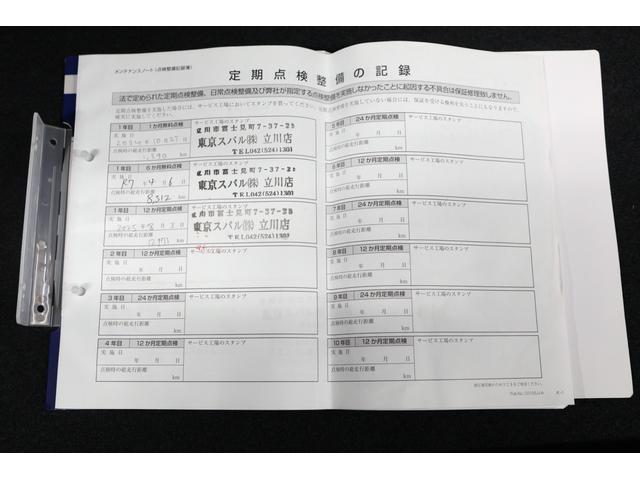 メンテナンスノート(点検整備記録簿)
定期点検整備の記録
法で定められた定期点検整備、日常点検整備及び弊社が指定する点検整備を実施しなかったことに起因する不具合は保証修理致しません。
1年目 1か月無料点検
サービス工場のスタンプ
実施日
点検時の総走行距離
km
立川市富士見町7-37-25
東京スバル㈱ 立川店
TEL042(524)1301
1年目 6か月無料点検
サービス工場のスタンプ
実施日
R7年4月6日
点検時の総走行距離
8,312 km
立川市富士見町7-37-25
東京スバル㈱ 立川店
TEL042(524)1301
1年目 12か月定期点検
サービス工場のスタンプ
実施日
点検時の総走行距離
km
立川市富士見町7-37-25
東京スバル㈱ 立川店
TEL042(524)1301
2年目 12か月定期点検
サービス工場のスタンプ
実施日
年 月 日
点検時の総走行距離
km
3年目 24か月定期点検
サービス工場のスタンプ
実施日
年 月 日
点検時の総走行距離
km
4年目 12か月定期点検
サービス工場のスタンプ
実施日
年 月 日
点検時の総走行距離
km
5年目 24か月定期点検
サービス工場のスタンプ
実施日
年 月 日
点検時の総走行距離
km
6年目 12か月定期点検
サービス工場のスタンプ
実施日
年 月 日
点検時の総走行距離
km
7年目 24か月定期点検
サービス工場のスタンプ
実施日
年 月 日
点検時の総走行距離
km
8年目 12か月定期点検
サービス工場のスタンプ
実施日
年 月 日
点検時の総走行距離
km
9年目 24か月定期点検
サービス工場のスタンプ
実施日
年 月 日
点検時の総走行距離
km
10年目 12か月定期点検
サービス工場のスタンプ
実施日
年 月 日
点検時の総走行距離
km